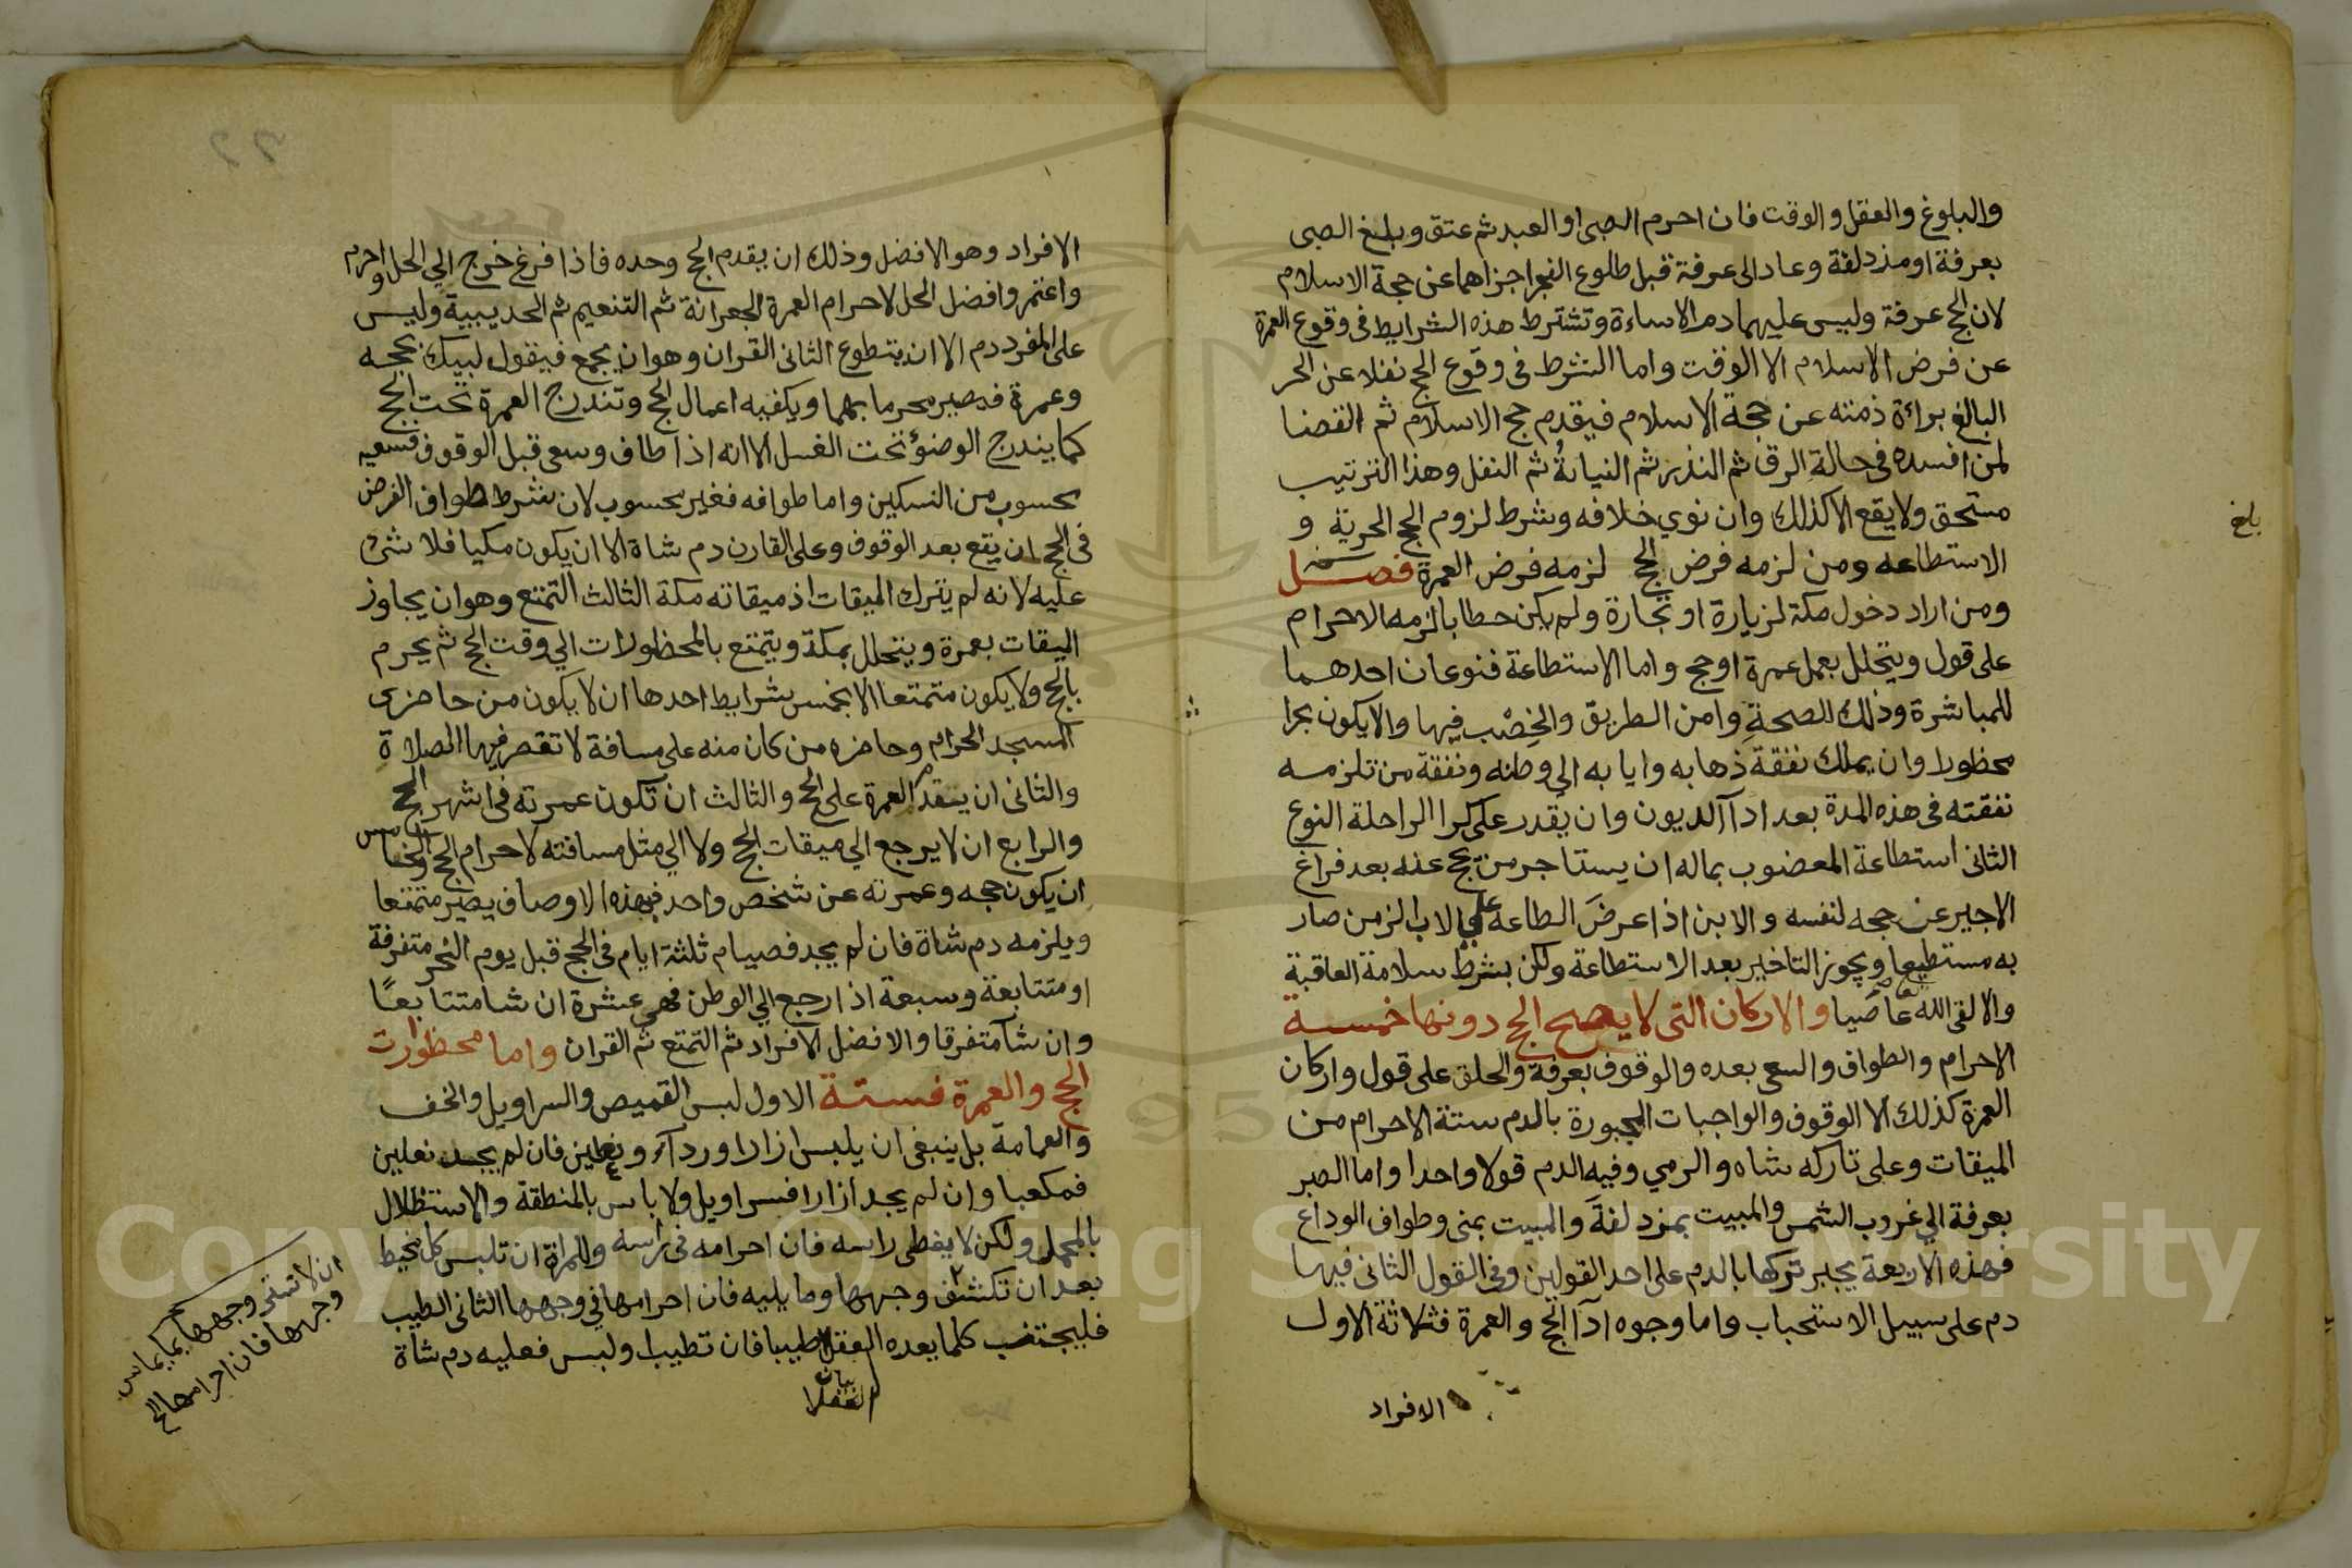 والبلوغ والعقل والوقت فان احرم الصبى او العبد ثم عتق وبلغ الصبى
بعرفة او مزدلفة وعاد الى عرفة قبل طلوع الفجر اجزاهما عن حجة الاسلام
لان الحج عرفة وليس عليهما دم الاساءة وتشترط هذه الشرايط فى وقوع العمرة
عن فرض الاسلام الا الوقت واما الشرط فى وقوع الحج نفلا عن الحر
البالغ براءة ذمته عن حجة الاسلام فيقدم حج الاسلام ثم القضا
لمن افسده فى حالة الرق ثم النذر ثم النيابةُ ثم النفل وهذا الترتيب
مستحق ولا يقع الا كذلك وان نوي خلافه وشرط لزوم الحج الحرية و
الاستطاعه ومن لزمه فرض الحج لزمه فرض العمرة فصل
ومن اراد دخول مكة لزيارة او تجارة ولم يكن حطابا لزمه الاحرام
على قول ويتحلل بعمل عمرة او حج واما الاستطاعة فنوعان احدهما
للمباشرة وذلك للصحةِ وامن الطريق والخِصْب فيها والا يكون بحرا
محظورا وان يملك نفقة ذهابه وايابه الى وطنه ونفقة من تلزمه
نفقته فى هذه المدة بعد ادآ الديون وان يقدر على كرا الراحلة النوع
الثانى استطاعة المعضوب بماله ان يستاجر من يحج عنه بعد فراغ
الاجير عن حجه لنفسه والابن اذا عرضَ الطاعة على الاب الزمن صار
به مستطيعا ويجوز التاخير بعد الاستطاعة ولكن بشرط سلامة العاقبة
والا لقى الله عاصيا والاركان التى لا يصح الحج دونها خمسة
الاحرام والطواف والسعى بعده والوقوف بعرفة والحلق على قول واركان
العمرة كذلك الا الوقوف والواجبات المجبورة بالدم ستة الاحرام من
الميقات وعلى تاركه شاه والرمي وفيه الدم قولا واحدا واما الصبر
بعرفة الي غروب الشمس والمبيت بمزدلفةَ والمبيت بمنى وطواف الوداع
فهذه الاربعة يجبر تركها بالدم على احد القولين وفى القول الثانى فيها
دم على سبيل الاستحباب واما وجوه ادآ الحج والعمرة فثلاثة الاول
الافراد
بلغ
الافراد وهو الافضل وذلك ان يقدم الحج وحده فاذا فرغ خرج الي الحل واحرم
واعتمر وافضل الحل لاحرام العمرة الجعرانة ثم التنعيم ثم الحديبية وليس
على المفرد دم الا ان يتطوع الثانى القران وهو ان يجمع فيقول لبيك بحجه
وعمرة فيصير محرما بهما ويكفيه اعمال الحج وتندرج العمرة تحت الحج
كما يندرج الوضوء تحت الغسل الا انه اذا طاف وسعى قبل الوقوف فسعيه
محسوب من النسكين واما طوافه فغير محسوب لان شرط طواف الفرض
فى الحج ان يقع بعد الوقوف وعلى القارن دم شاة الا ان يكون مكيا فلا شئ
عليه لانه لم يترك الميقات اذ ميقاته مكة الثالث التمتع وهو ان يجاوز
الميقات بعمرة ويتحلل بمكة ويتمتع بالمحظورات الي وقت الحج ثم يحرم
بالحج ولا يكون متمتعا الا بخمس شرايط احدها ان لا يكون من حاضرى
المسجد الحرام وحاضره من كان منه على مسافة لا تقصر فيها الصلاة
والثانى ان يقدم العمرة على الحج والثالث ان تكون عمرته فى اشهر الحج
والرابع ان لا يرجع الي ميقات الحج ولا الي مثل مسافته لاحرام الحج والخامس
ان يكون حجه وعمرته عن شخص واحد فبهذه الاوصاف يصير متمتعا
ويلزمه دم شاة فان لم يجد فصيام ثلثة ايام فى الحج قبل يوم النحر متفرقة
او متتابعة وسبعة اذا رجع الي الوطن فهى عشرة ان شا متتابعًا
وان شآ متفرقا والافضل الافراد ثم التمتع ثم القران واما محظورات
الحج والعمرة فستة الاول لبس القميص والسراويل والخف
والعمامة بل ينبغى ان يلبس ازارا وردآء ونعلين فان لم يجد نعلين
فمكعبا وان لم يجد ازارا فسراويل ولا باس بالمنطقة والاستظلال
بالمحمل ولكن لا يغطى راسه فان احرامه فى راسه وللمراة ان تلبس كل مخيط
بعد ان تكشف وجهها وما يليه فان احرامها في وجهها الثانى الطيب
فليجتنب كلما يعده العقلا طيبا فان تطيب او لبس فعليه دم شاة
بيان
العقلا
ان لا تستر وجهها بما يماس
وجهها فان احرامها الخ